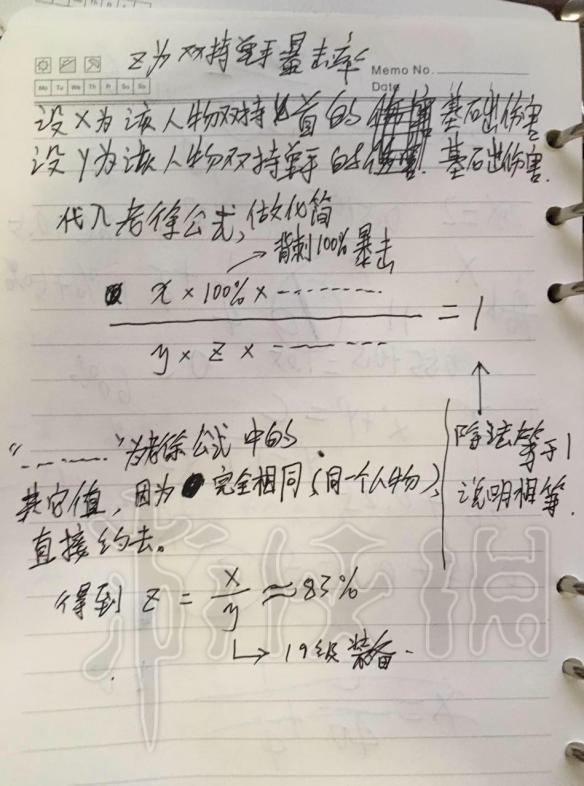 Z为双持单手暴击率
Memo No.
Date
Mo Tu We Th Fr Sa Su
设X为该人物双持匕首的基础伤害
设y为该人物双持单手的基础伤害.
代入老徐公式,做化简
背刺100%暴击
x×100%×--------
= 1
y×z×--------
"--------"为老徐公式中的
其它值,因为完全相同(同一个人物),
直接约去。
除法等于1
说明相等.
得到 z = x/y ≈83%
↳ 19级装备.